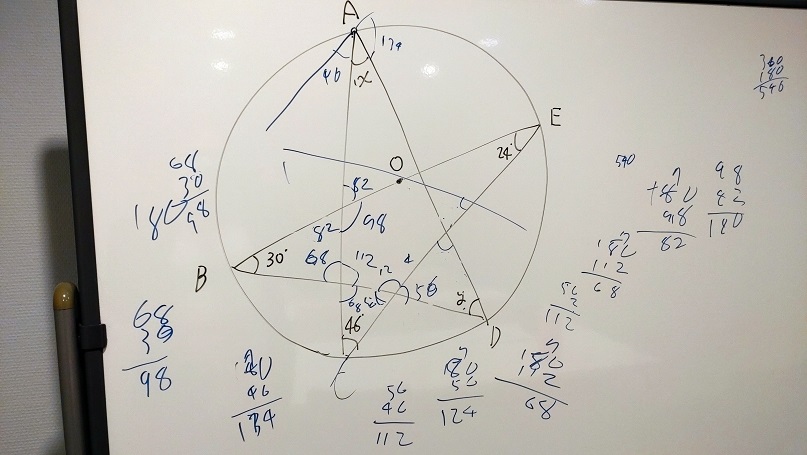 A
46 x 134
E
24°
O
82
82 98
B
30°
68 112
56
46°
C
D
360
180
540
540
68
30
180 98
68
30
98
180
46
134
56
46
112
180
56
124
180
112
68
56
2
112
180
112
68
180
98
82
98
82
180